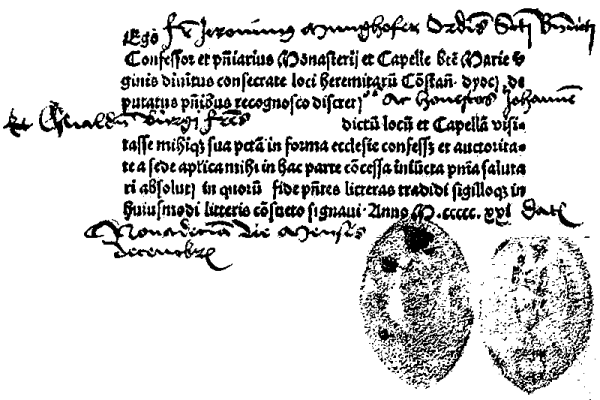 Ego fr̄ Jeronimus Munghofer Ordis Scti Bn̄dicti
Confessor et pn̄iarius Monasterij et Capelle bt̄e Marie v̓
ginis diuitus consecrate loci heremitarū Cōstan̄. dyoc̄, de
putatus pn̄ibus recognosco discret ac honestos Johannē
Et Oswaldū fr̄es dictū locū et Capellā visi-
tasse mihiqꝫ sua pctā in forma ecclesie confessꝫ et auctorita-
te a sede aplica mihi in hac parte cōcessa iniūcta pnīa saluta
ri absolui in quorū fide pn̄tes litteras tradidi sigilloqꝫ in
huiusmodi litteris cōsueto signaui. Anno M. ccccc. xxi dat
die Mensis
decembr